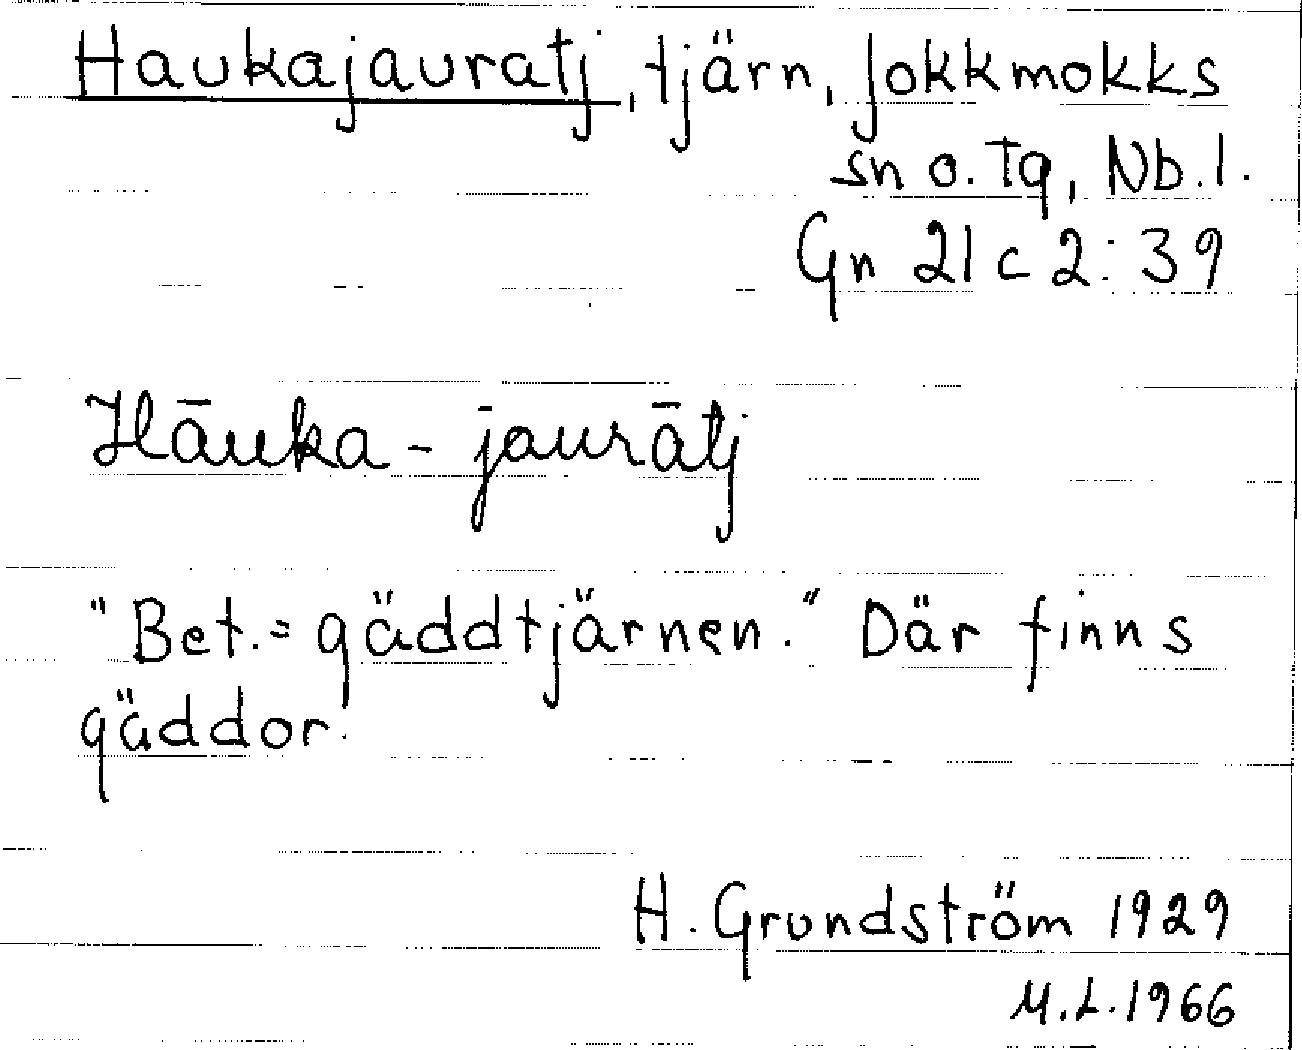 Haukajauratj, tjärn, Jokkmokks
sn o. Tg, Nb.l.
Gn 21 c 2:39
Hāuka-jaurātj
"Bet.= gäddtjärnen." Där finns
gäddor.
H. Grundström 1929
M.L.1966